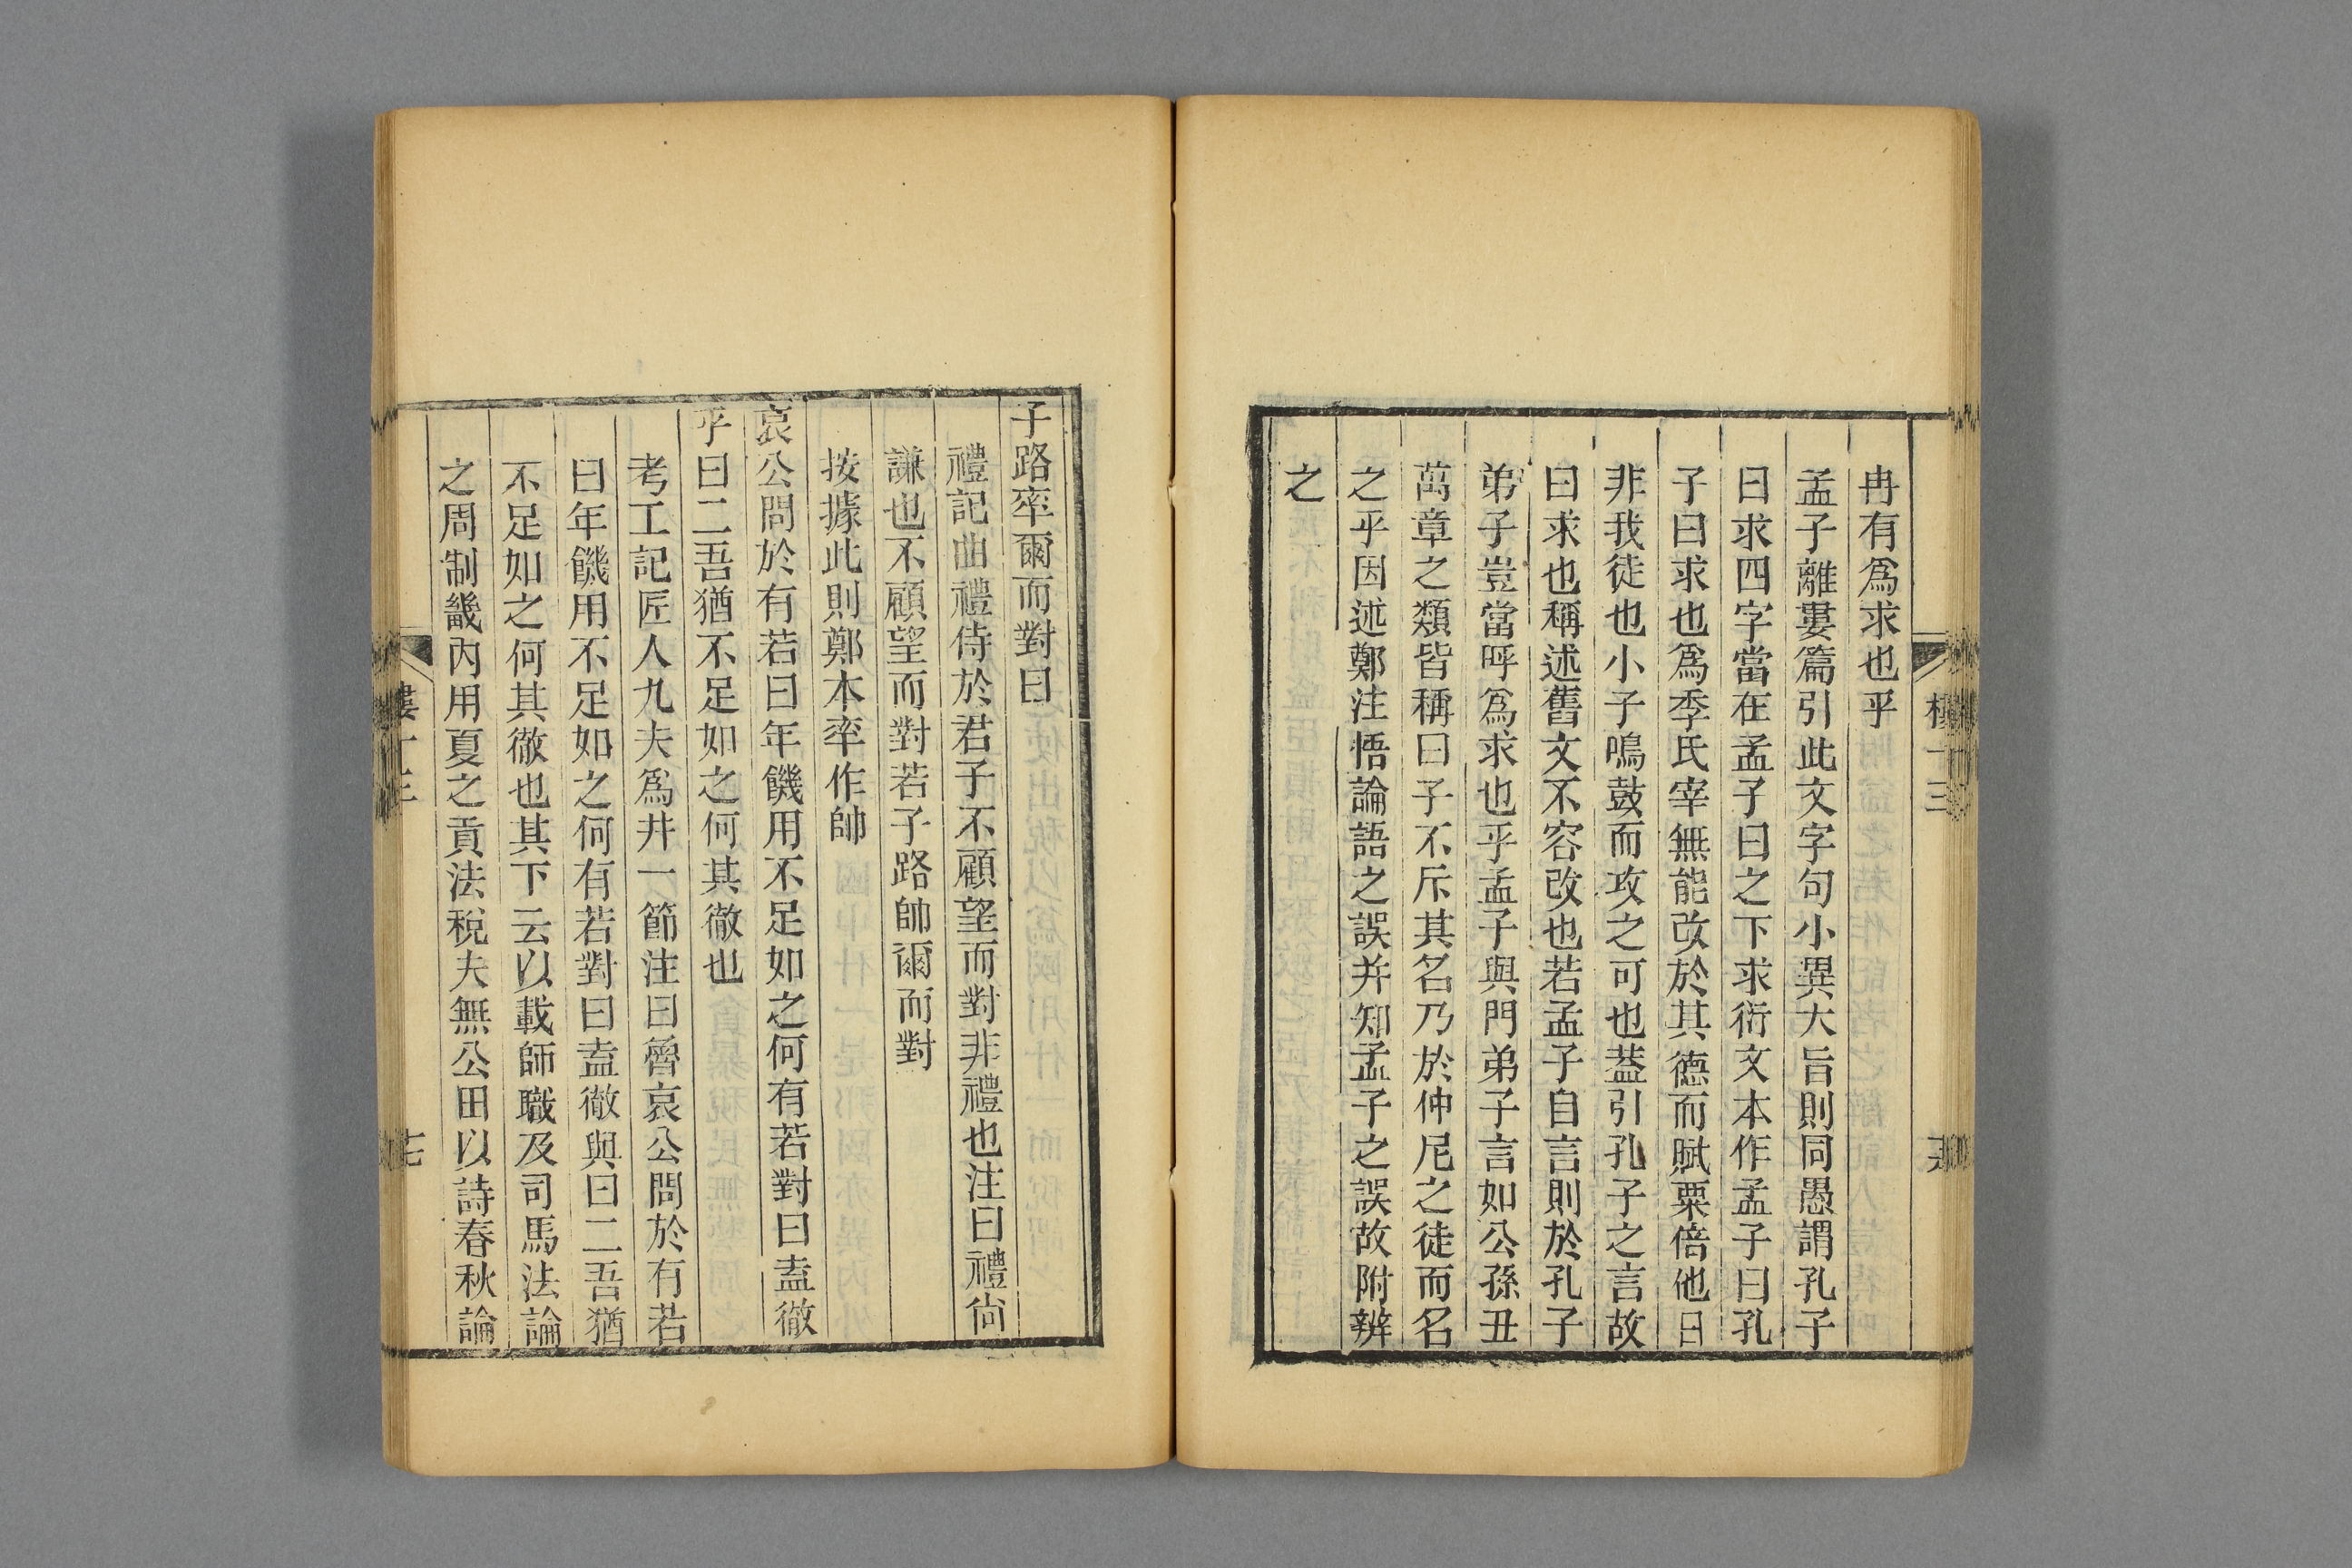 冉有爲求也乎
孟子離婁篇引此文字句小異大旨則同愚謂孔子
曰求四字當在孟子曰之下求衍文本作孟子曰孔
子曰求也爲季氏宰無能改於其德而賦粟倍他日
非我徒也小子鳴鼓而攻之可也葢引孔子之言故
曰求也稱述舊文不容改也若孟子自言則於孔子
弟子豈當呼爲求也乎孟子與門弟子言如公孫丑
萬章之類皆稱曰子不斥其名乃於仲尼之徒而名
之乎因述鄭注悟論語之誤并知孟子之誤故附辨
之
子路率爾而對曰
禮記曲禮侍於君子不顧望而對非禮也注曰禮尙
謙也不顧望而對若子路帥爾而對
按據此則鄭本率作帥
哀公問於有若曰年饑用不足如之何有若對曰盍徹
乎曰二吾猶不足如之何其徹也
考工記匠人九夫爲井一節注曰魯哀公問於有若
曰年饑用不足如之何有若對曰盍徹與曰二吾猶
不足如之何其徹也其下云以載師職及司馬法論
之周制畿內用夏之貢法稅夫無公田以詩春秋論
樓十三